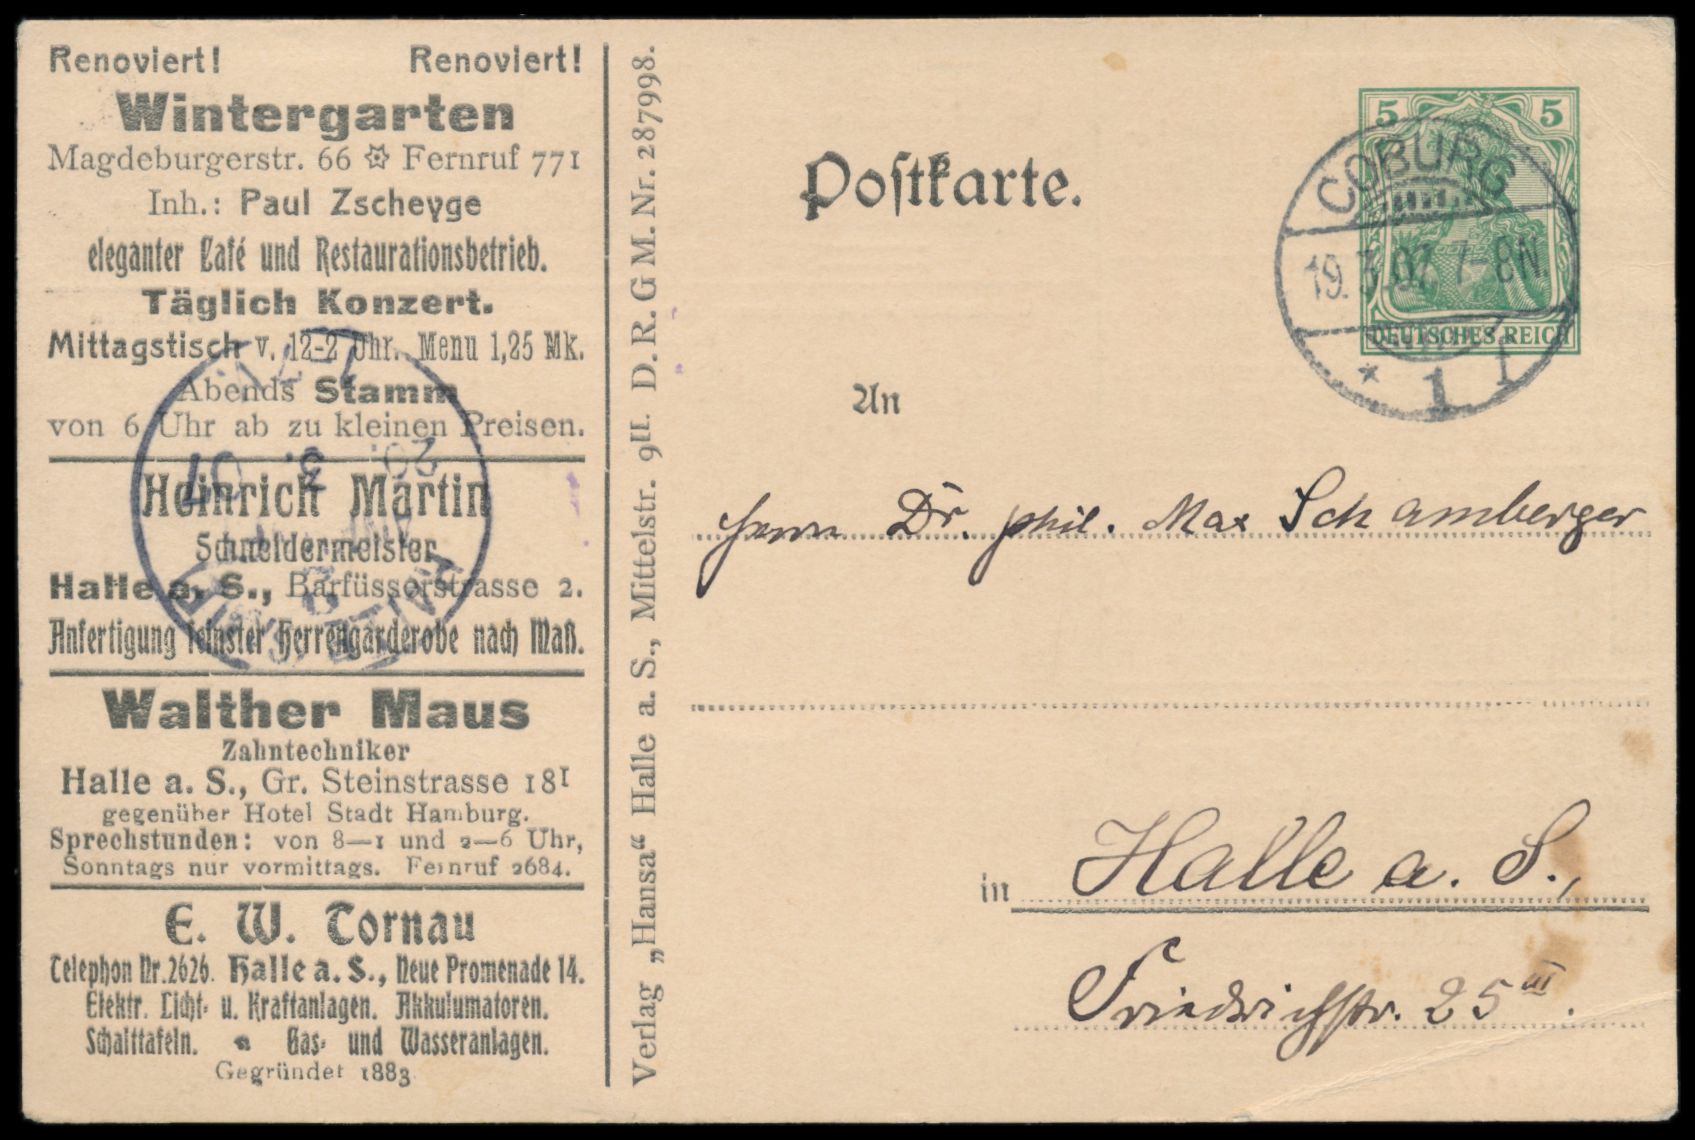 Renoviert! Renoviert!
Wintergarten
Magdeburgerstr. 66 Fernruf 771
Inh.: Paul Zscheyge
eleganter Café und Restaurationsbetrieb.
Täglich Konzert.
Mittagstisch v. 12-2 Uhr. Menu 1,25 Mk.
Abends Stamm
von 6 Uhr ab zu kleinen Preisen.
Heinrich Martin
Schneidermeister
Halle a. S., Barfüsserstrasse 2.
Anfertigung feinster Herrengarderobe nach Maß.
Walther Maus
Zahntechniker
Halle a. S., Gr. Steinstrasse 18I
gegenüber Hotel Stadt Hamburg.
Sprechstunden: von 8—1 und 2—6 Uhr,
Sonntags nur vormittags. Fernruf 2684.
E. W. Tornau
Telephon Nr. 2626. Halle a. S., Neue Promenade 14.
Elektr. Licht- u. Kraftanlagen. Akkulumatoren.
Schalttafeln. Gas- und Wasseranlagen.
Gegründet 1883
Verlag „Hansa“ Halle a. S., Mittelstr. 9II. D. R. G M. Nr. 287998.
Postkarte.
5 5
DEUTSCHES REICH
COBURG
19. 3. 07. 7-8N.
* 1 I
An
Herrn Dr. phil. Max Schamberger
in Halle a. S.,
Friedrichstr. 25III.
HALLE
20. 3. 07